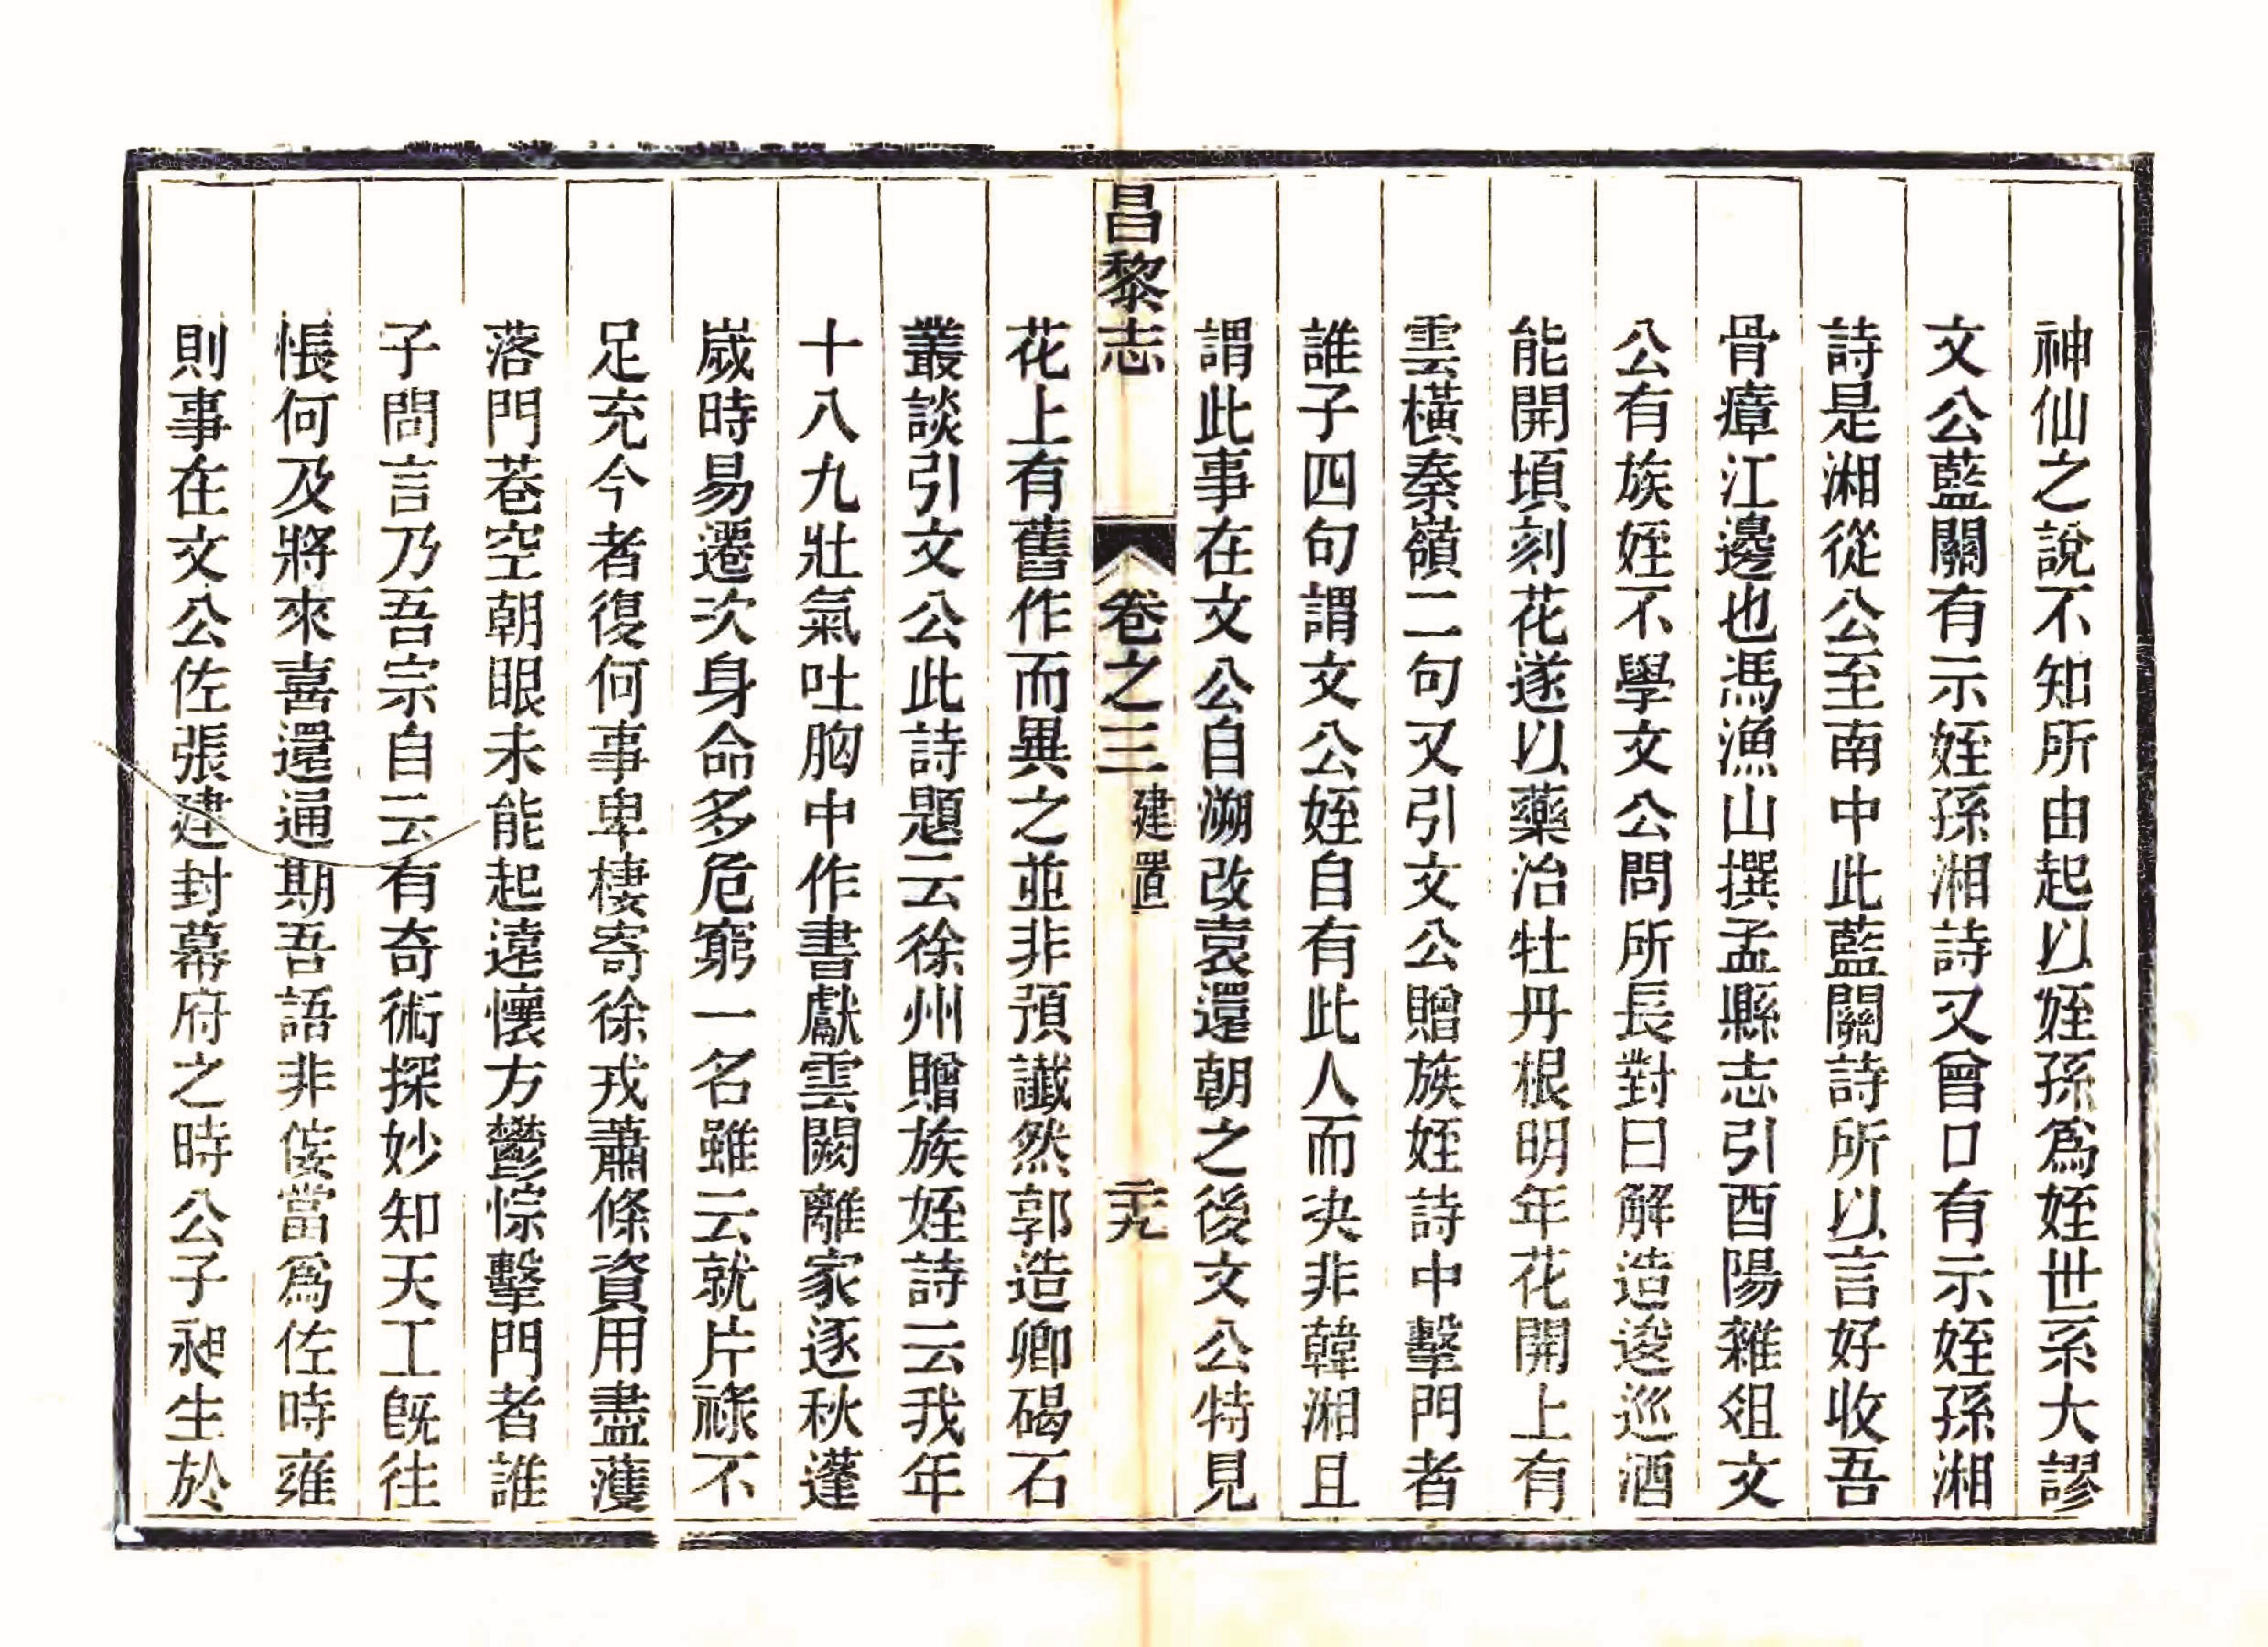 神仙之說不知所由起以姪孫爲姪世系大謬
文公藍關有示姪孫湘詩又曾口有示姪孫湘
詩是湘從公至南中此藍關詩所以言好收吾
骨瘴江邊也馮漁山撰孟縣志引酉陽雜俎文
公有族姪不學文公問所長對曰解造逡巡酒
能開頃刻花遂以藥治牡丹根明年花開上有
雲橫秦嶺二句又引文公贈族姪詩中擊門者
誰子四句謂文公姪自有此人而决非韓湘且
謂此事在文公自潮改袁還朝之後文公特見
昌黎志 卷之三 建置 二十九
花上有舊作而異之並非預讖然郭造卿碣石
叢談引文公此詩題云徐州贈族姪詩云我年
十八九壯氣吐胸中作書獻雲闕離家逐秋蓬
歲時易遷次身命多危窮一名雖云就片祿不
足充今者復何事卑棲寄徐戎蕭條資用盡濩
落門巷空朝眼未能起遠懷方鬱悰擊門者誰
子問言乃吾宗自云有奇術探妙知天工旣往
悵何及將來喜還通期吾語非佞當爲佐時雍
則事在文公佐張建封幕府之時公子昶生於